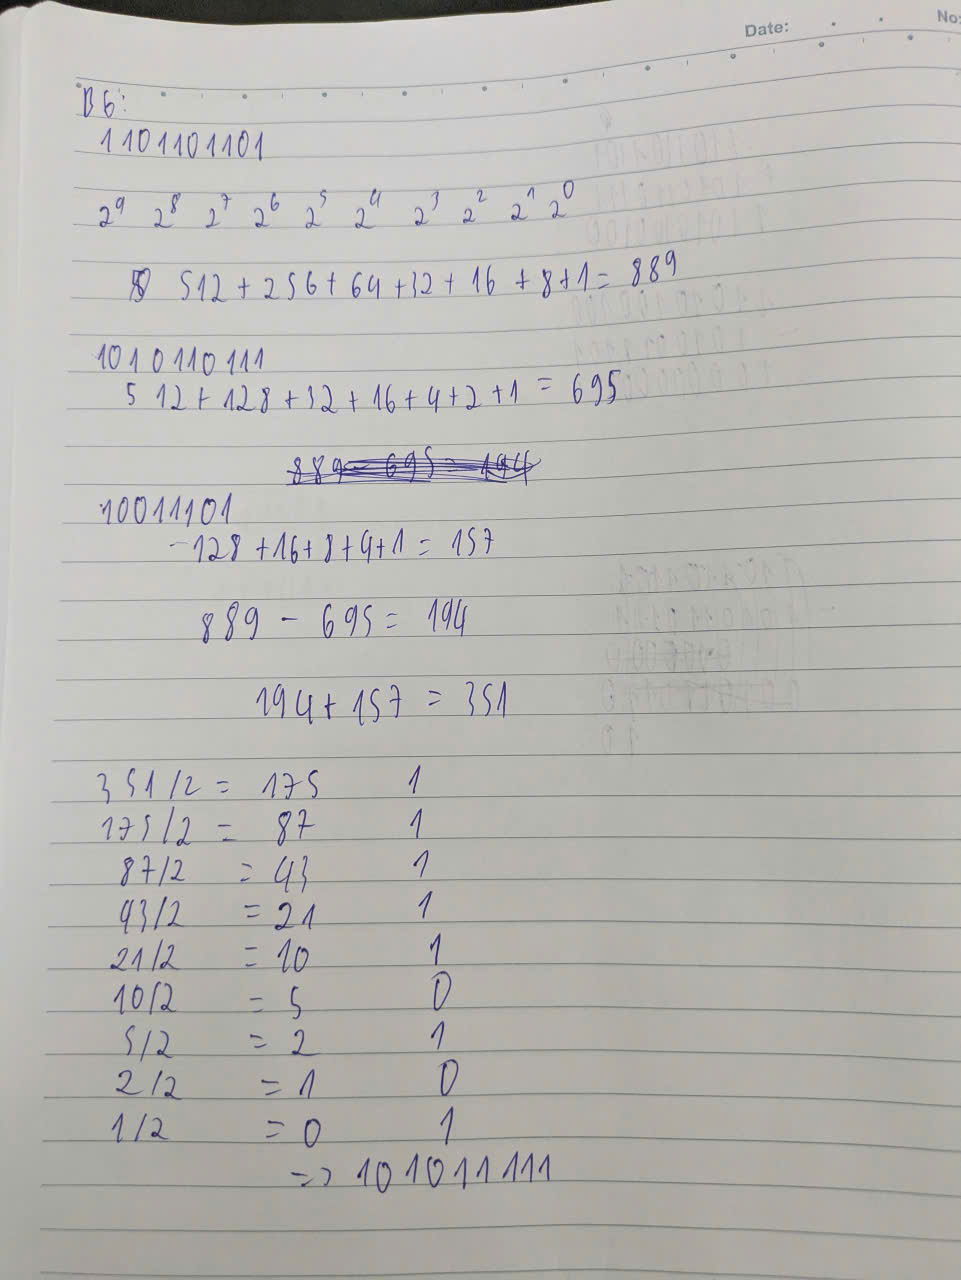 Date:
No:
B6:
1101101101
2⁹ 2⁸ 2⁷ 2⁶ 2⁵ 2⁴ 2³ 2² 2¹ 2⁰
512 + 256 + 64 + 32 + 16 + 8 + 1 = 889
1010110111
512 + 128 + 32 + 16 + 4 + 2 + 1 = 695
889 - 695 = 194
10011101
-128 + 16 + 8 + 4 + 1 = 157
889 - 695 = 194
194 + 157 = 351
351/2 = 175 1
175/2 = 87 1
87/2 = 43 1
43/2 = 21 1
21/2 = 10 1
10/2 = 5 0
5/2 = 2 1
2/2 = 1 0
1/2 = 0 1
=> 101011111